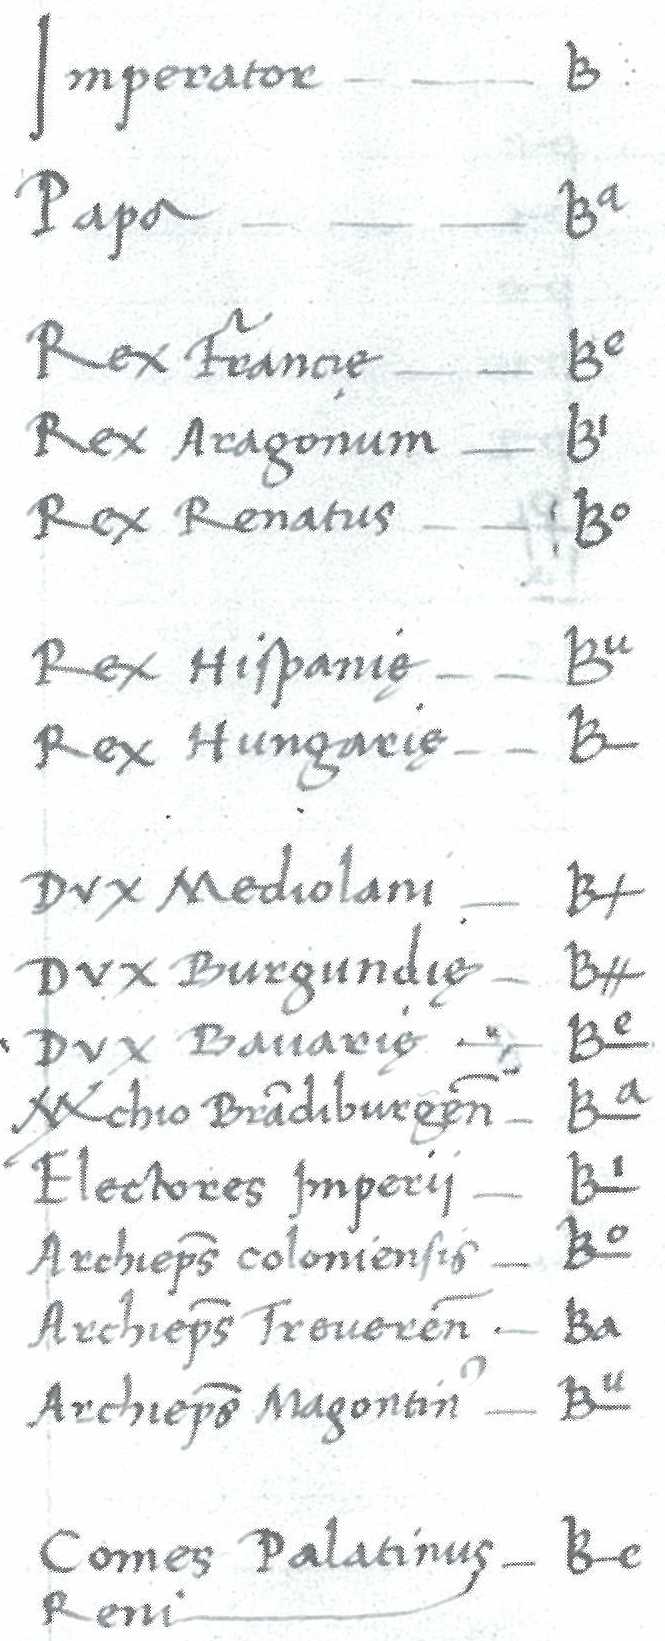 Imperator — — B
Papa — — — Bᵃ
Rex Francie — — Bᵉ
Rex Aragonum — Bⁱ
Rex Renatus — — Bᵒ
Rex Hispanię — — Bᵘ
Rex Hungarię — — B–
Dvx Mediolani — B+
Dvx Burgundię — B⧺
Dvx Bauarię — B–ᵉ
chio Brādiburgen̄ — B–ᵃ
Electores Imperij — B–ⁱ
Archiep̄s coloniensis — B–ᵒ
Archiep̄s Treueren̄ — Ba
Archiep̄s Magontin̄ — B–ᵘ
Comes Palatinus — B–c
Reni